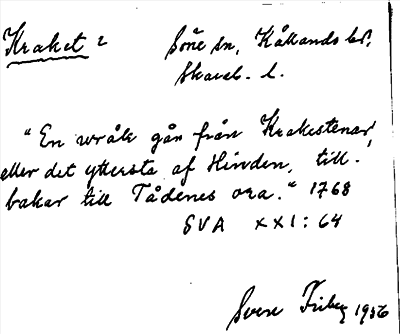 Kraket 2 Söne sn, Kållands hd,
Skarab. l.
"En wråk går från Krakestenar,
eller det yttersta af Hinden, till-
bakar till Tådenes ora." 1768
SVA XXI: 64
Sven Friberg 1956